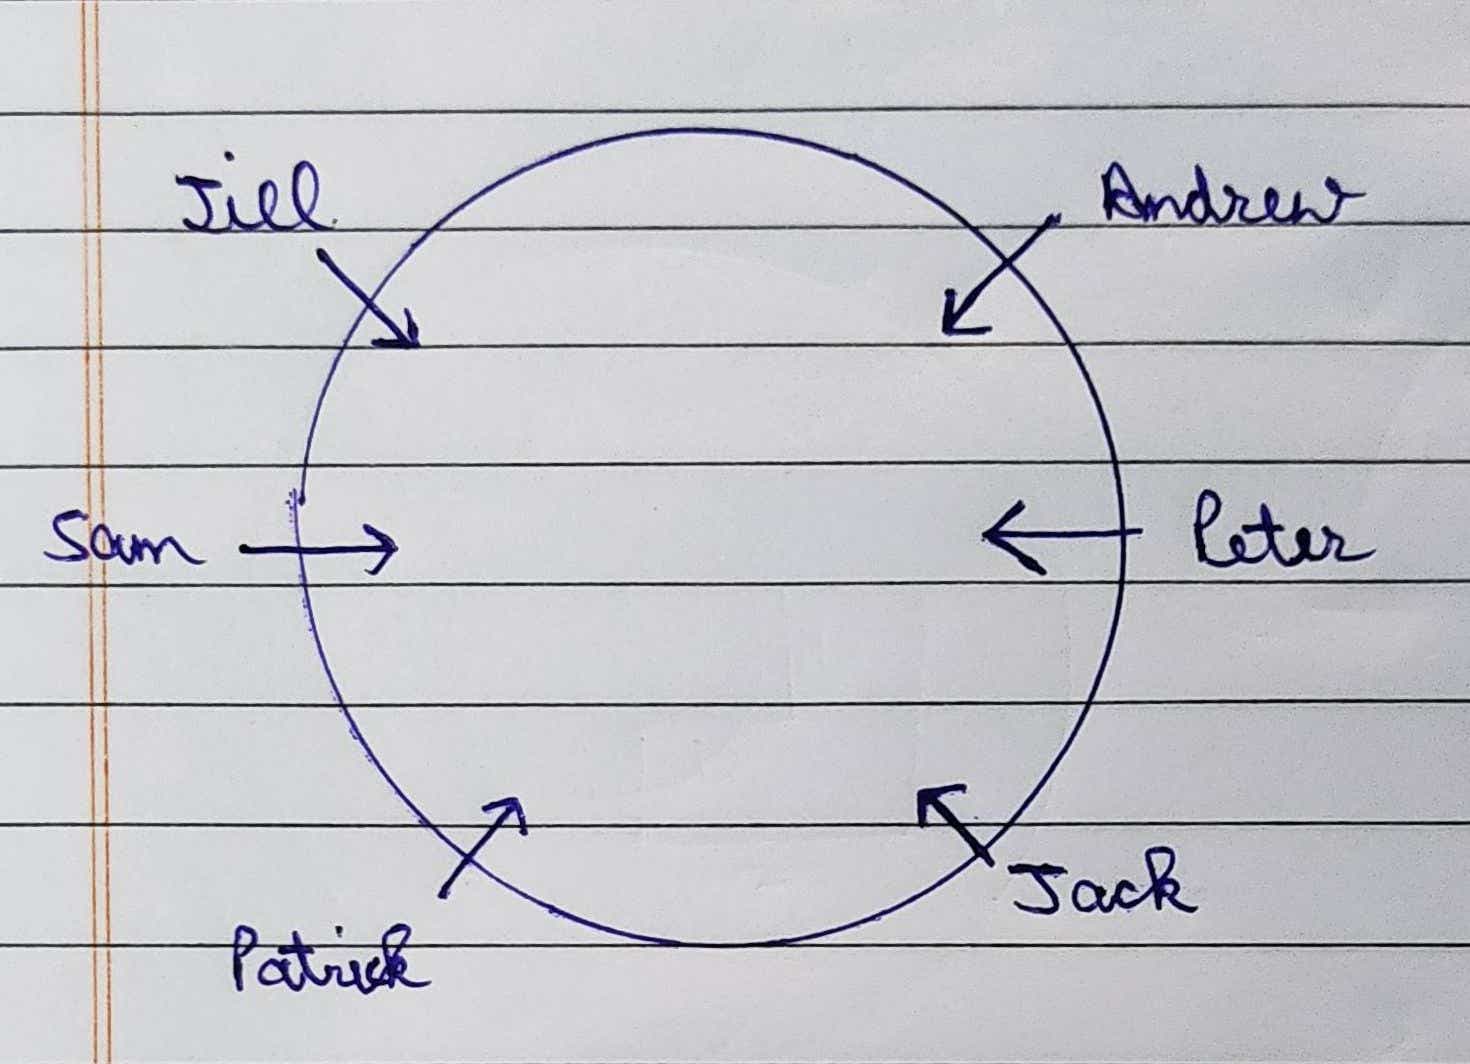 Jill
Andrew
Sam
Peter
Jack
Patrick